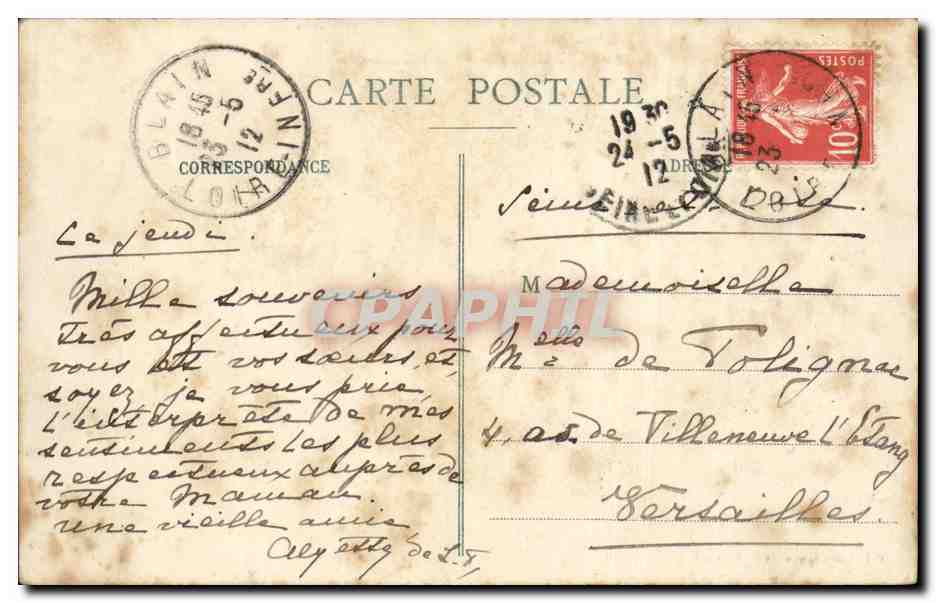 BLAIN
18 15
23 -5
12
LOIRE-INFRE
CARTE POSTALE
CORRESPONDANCE
ADRESSE
19 30
24 -5
12
SEINE-ET-OISE
BLAIN
18 15
23
LOIRE
POSTES
10
Le jeudi.
Mille souvenirs
très affectueux pour
vous et vos sœurs, et
soyez, je vous prie,
l'interprète de mes
sentiments les plus
respectueux auprès de
votre Maman.
Une vieille amie
de L.T,
Seine et Oise.
Mademoiselle
Melle de Polignac
4, de Villeneuve l'Etang
Versailles.
CPAPHIL